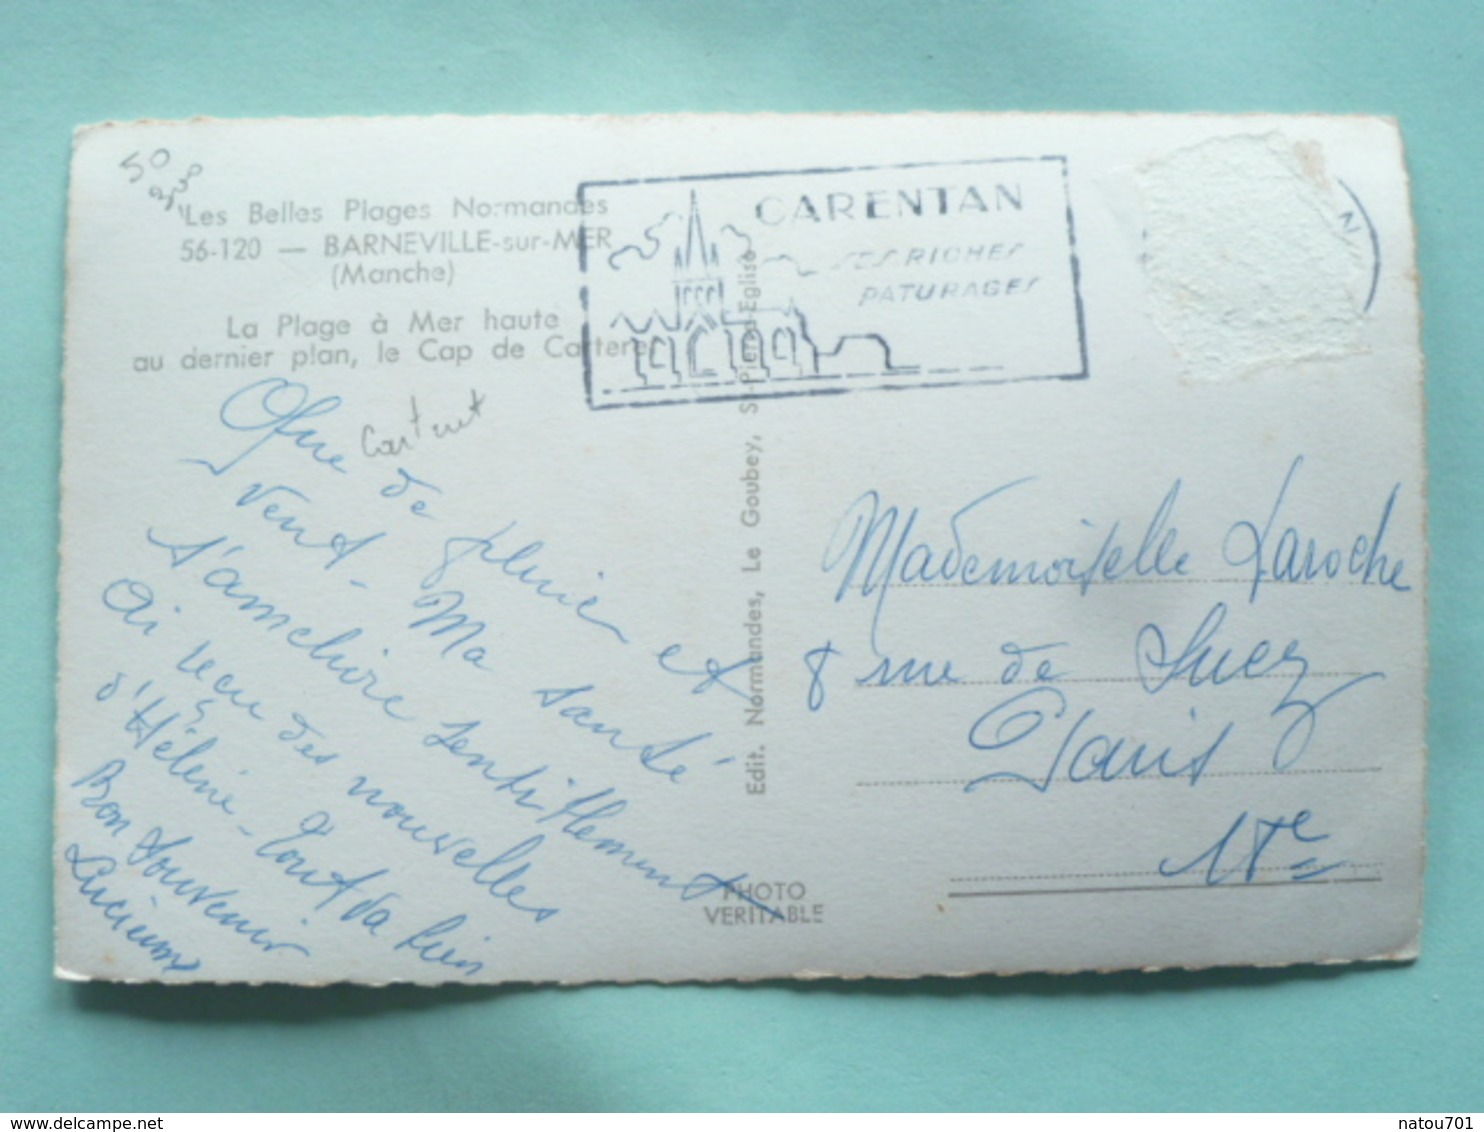 50
Les Belles Plages Normandes
56-120 — BARNEVILLE-sur-MER
(Manche)
La Plage à Mer haute
au dernier plan, le Cap de Carteret
CARENTAN
SES RICHES
PATURAGES
Que de pluie et
vent - Ma santé
s'améliore sentiblement
Ai reçu des nouvelles
d'Hélène - Tout va bien
Bon souvenir
Lucienne
Edit. Normandes, Le Goubey, St-Pierre-Eglise
PHOTO
VERITABLE
Mademoiselle Laroche
8 rue de Suez
Paris
18e
natou701